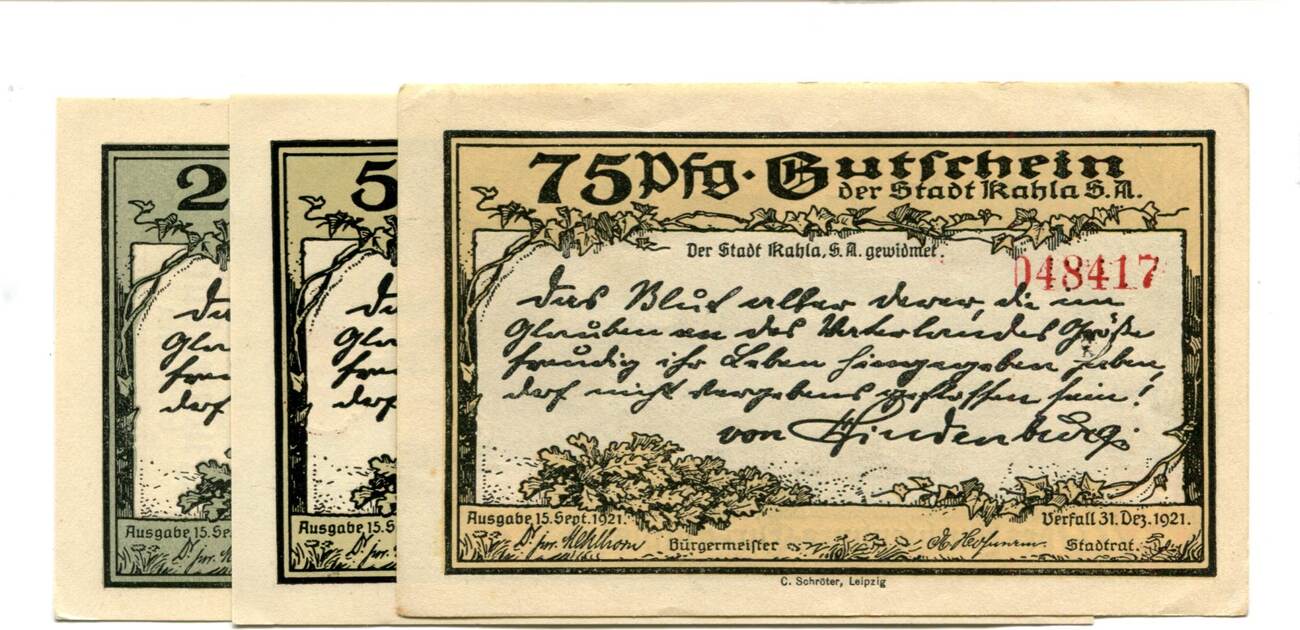 2
Ausgabe 15. Se
5
Ausgabe 15. S
75 Pfg. Gutschein
der Stadt Kahla S. A.
Der Stadt Kahla, S. A. gewidmet.
048417
Das Blut aller derer die im
Glauben an des Vaterlandes Größe
freudig ihr Leben hingegeben haben,
darf nicht vergebens geflossen sein!
von Hindenburg.
Ausgabe 15. Sept. 1921.
Verfall 31. Dez. 1921.
Dr. jur. Bürgermeister
Stadtrat.
C. Schröter, Leipzig